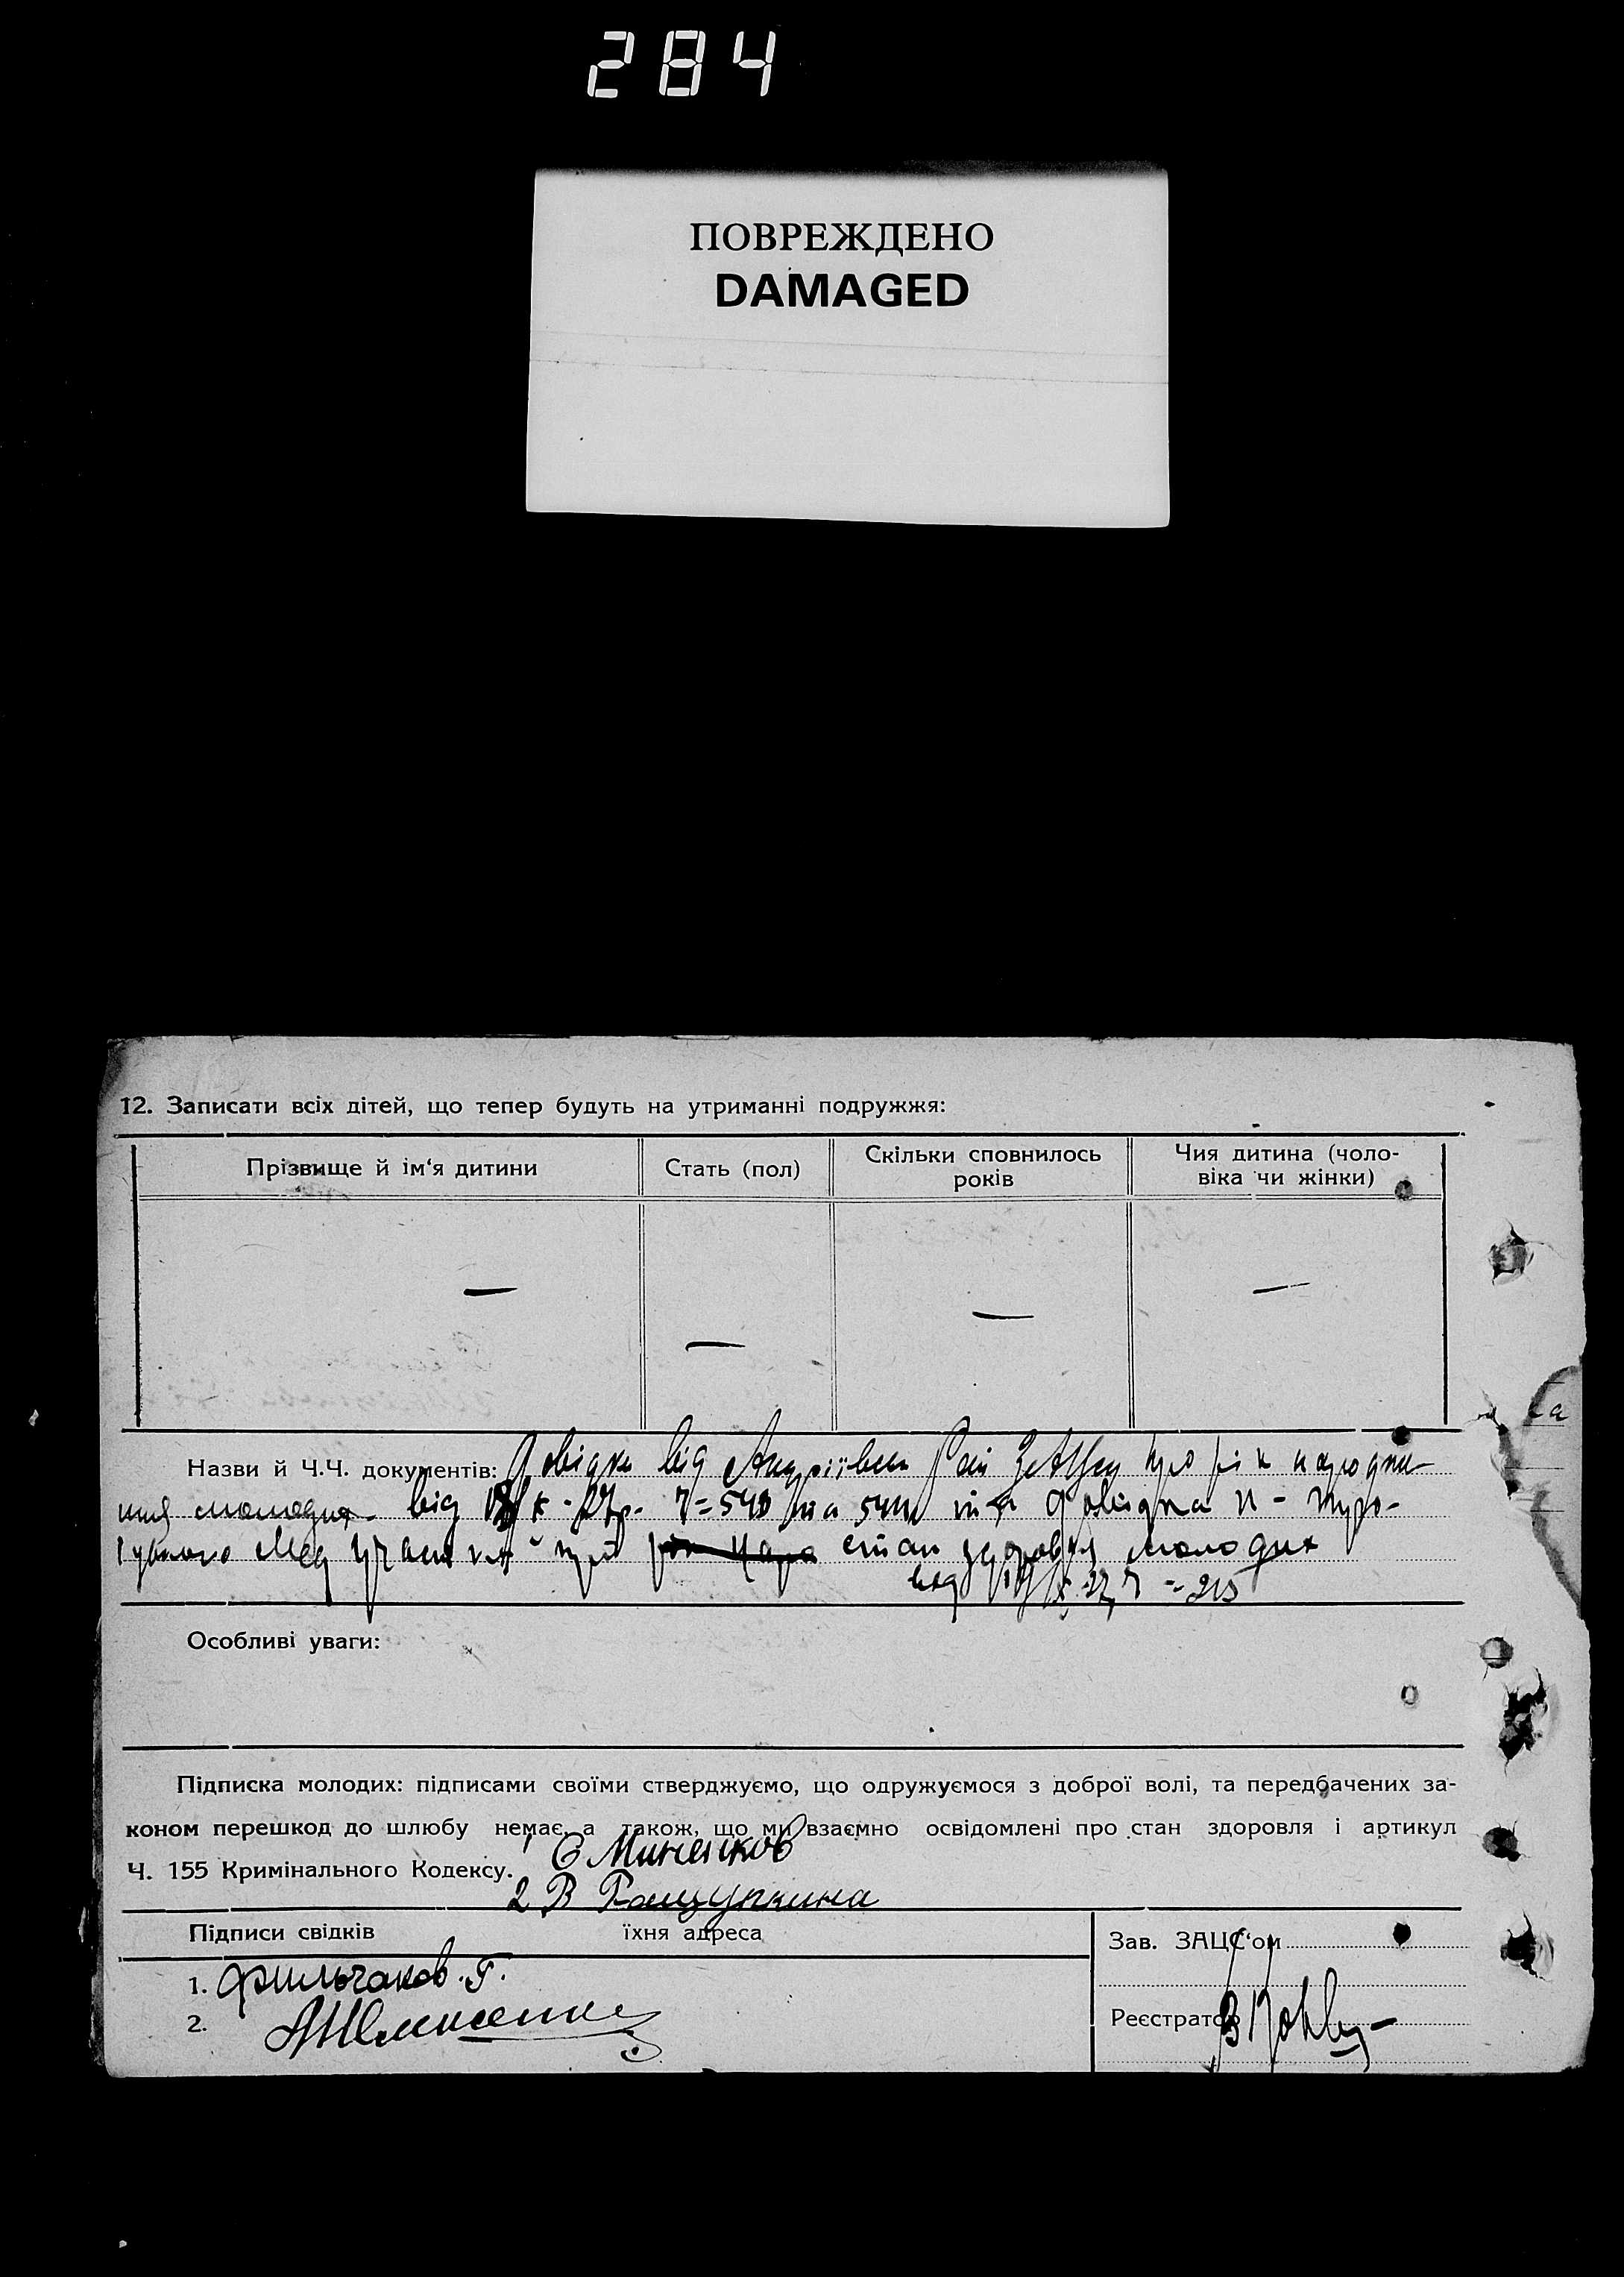 284
ПОВРЕЖДЕНО
DAMAGED
12. Записати всіх дітей, що тепер будуть на утриманні подружжя:
Прізвище й ім‘я дитини
Стать (пол)
Скільки сповнилось
років
Чия дитина (чоло-
віка чи жінки)
—
—
—
—
Назви й Ч.Ч. документів: Довідки від Андріївськ Рай ЗАЦСу про рік народжи-
ння молодих від 27р. Ч=543 та 544 та довідка
Мед участка про стан здоровля молодих
від 27, Ч = 215
Особливі уваги:
Підписка молодих: підписами своїми стверджуємо, що одружуємося з доброї волі, та передбачених за-
коном перешкод до шлюбу немає, а також, що ми взаємно освідомлені про стан здоровля і артикул
Ч. 155 Кримінального Кодексу. 1 Є Миненков
2 В Ращупкина
Підписи свідків
їхня адреса
Зав. ЗАЦС‘ом
1. Фильчаков. Г.
2.
Реєстратор